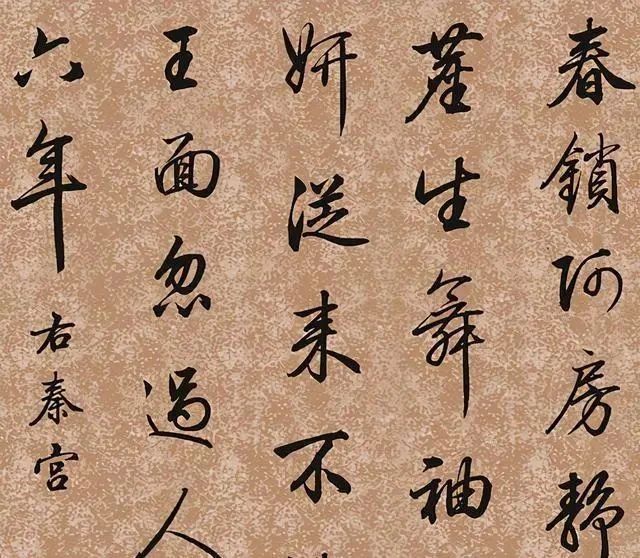 春鎖阿房静
塵生舞袖
妍從来不
王面忽過人
六年
右秦宮